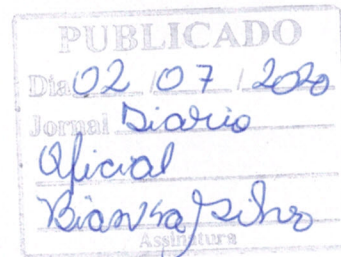 PUBLICADO
Dia 02 / 07 / 2020
Jornal Diario
Oficial
Bianka Silva
Assinatura